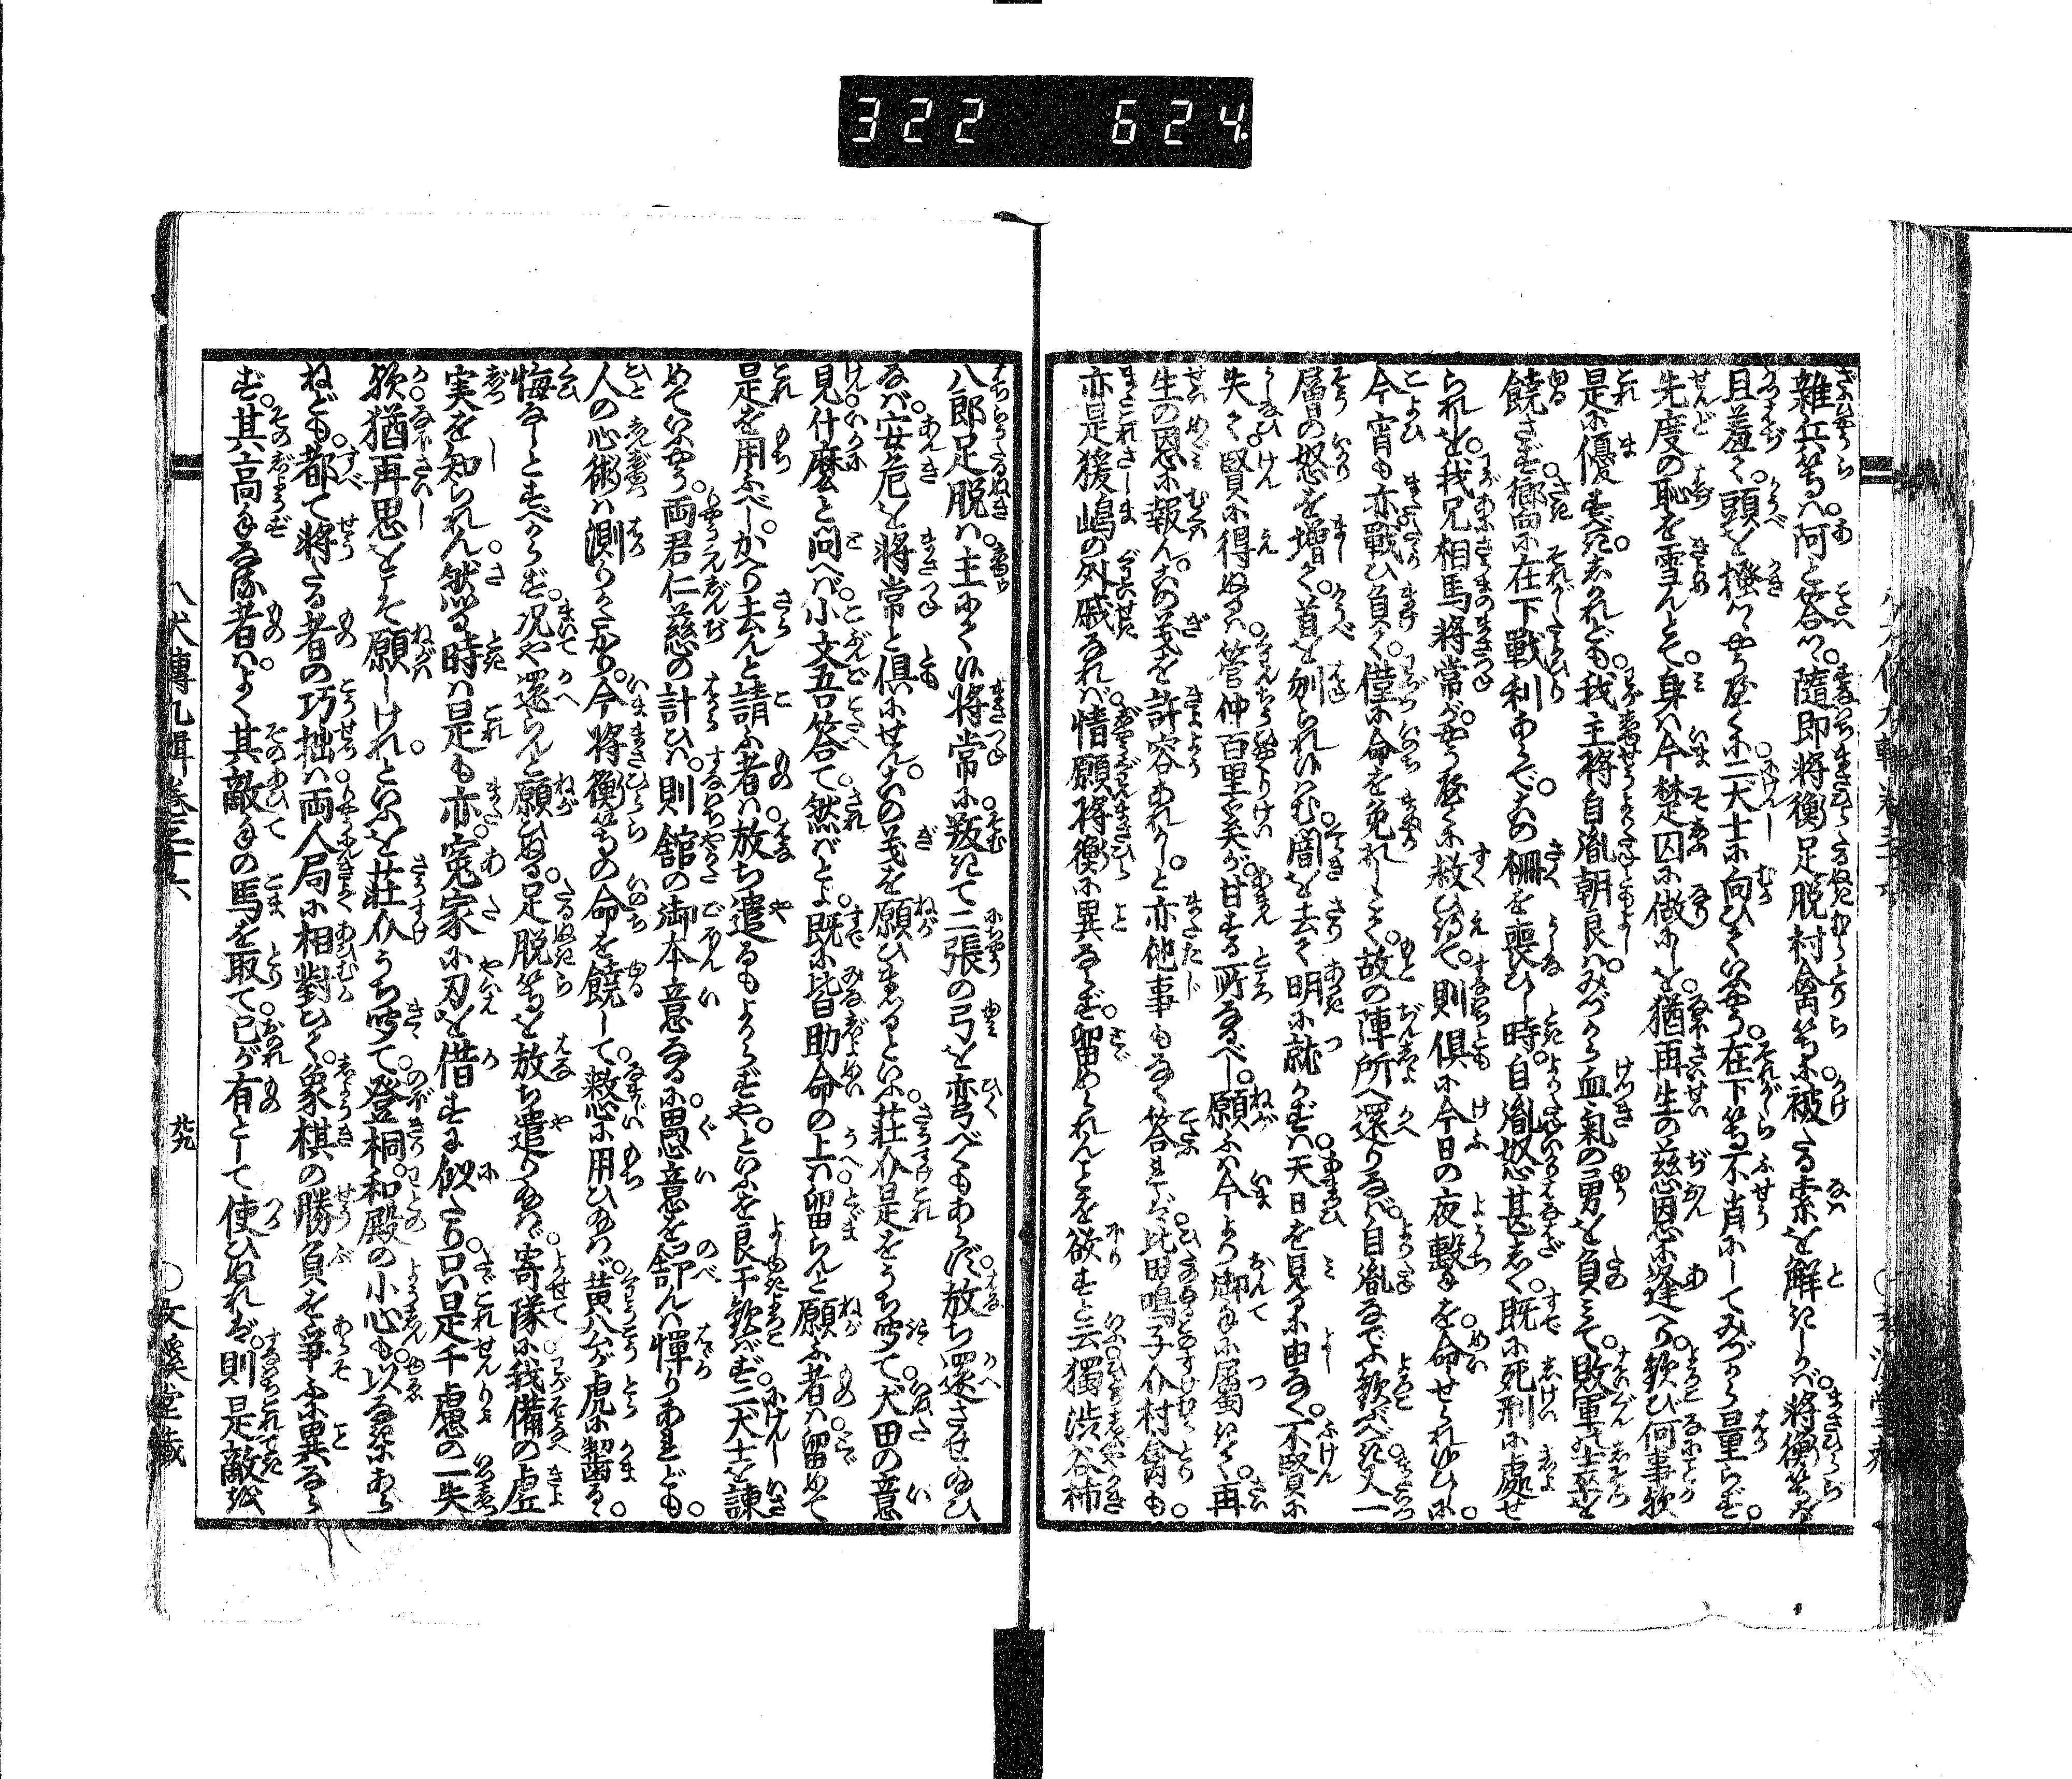 322 624
雑兵等ハ。阿と答へつゝ。随即将衡足脱村禽等に被たる索を觧にしかバ。将衡等ハ
且羞て。頭を搔つゝやうやくに二犬士に向ひていふやう。在下等不肖にしてみづから量らず。
先度の恥を雪んとて。身ハ今楚囚に做にしを。猶再生の慈恩に逢へり。歓び何事歟
是に優すべき。しかれども我主将自胤朝良ハ。みづから血氣の勇を負みて。敗軍の士卒を
饒さず。嚮に在下戰利あらで。この柵を喪ひし時。自胤怒甚しく。既に死刑に處せ
られしを。我兄相馬将常が。やうやくに救ひ得て。則倶に今日の夜撃を。命せられしに。
今宵も亦戰ひ負て。僅に命を免れしとて。故の陣所へ還りなバ。自胤なでふ歓ぶべき。又一
層の怒を増て。首を刎られんのみ。闇を去て明に就かずハ天日を見るに由なく。不賢に
失て。賢に得ぬるハ。管仲百里奚が甘する所なるべし。願ふハ今より御手に屬て。再
生の恩に報ん。この義を許容あれかし。と亦他事もなく答れバ。比田鳴子介村禽も
亦是猨嶋の外戚なれバ。情願将衡に異ならず。留められんことを欲すと云。獨渋谷柿
八郎足脱ハ。主よく将常に叛きて二張の弓を彎べくもあらず。放ち還させ給ひ
なバ。安危を将常と倶にせん。この義を願ひまつるといふ。荘介是をうち聞て。犬田の意
見什麼と問へバ。小文吾答て。然バとよ。既に皆助命の上ハ。留らんと願ふ者ハ。留めて
是を用ふべし。かへり去んと請ふ者ハ。放ち遣るもよからずや。といふを良干歓バず。二犬士を諫
めていふやう。両君仁慈の計ひハ。則舘の御本意なるに。愚意を舒んハ憚りあれども。
人の心術ハ測りがたかり。今将衡等の命を饒して。憖に用ひ給ハゞ。黄公が虎に齧るゝ
悔なしとすべからず。况や還らんと願ひぬる。足脱等を放ち遣り給ハゞ。寄隊に我備の虚
実を知られん。然る時ハ是も亦。寃家に刃を借すに似たり。只是千慮の一失
歟。猶再思をこそ願しけれ。といふを荘介うち聞て。登桐。和殿の小心も。以なきにあら
ねども。都て将たる者の巧拙ハ。両人局に相對ひて。象棋の勝負を爭ふに異なら
ず。其高手なる者ハ。よく其敵手の馬を取て。己が有として使ひぬれバ。則是敵を
八犬傳九輯巻三十六
廿九
○文溪堂藏